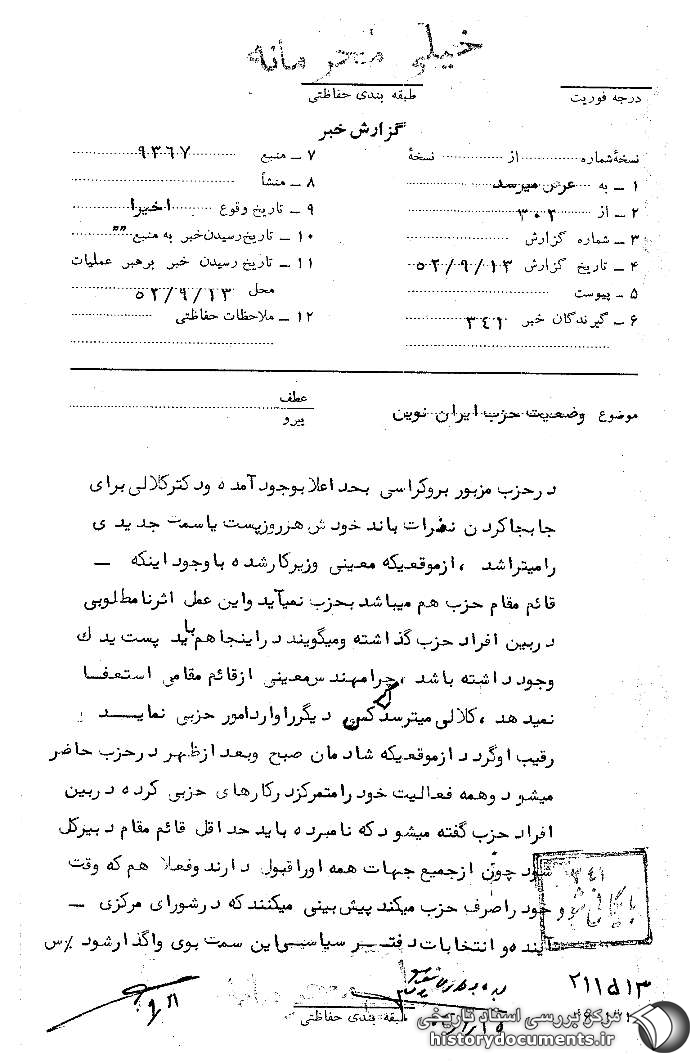 خیلی محرمانه
درجه فوریت
طبقه بندی حفاظتی
گزارش خبر
نسخهٔ شماره ........ از ........ نسخهٔ
۱ ـ به عرض میرسد
۲ ـ از ۳۰۲
۳ ـ شماره گزارش
۴ ـ تاریخ گزارش ۵۲/۹/۱۳
۵ ـ پیوست
۶ ـ گیرندگان خبر ۳۴۱
۷ ـ منبع ۹۳۶۷
۸ ـ منشأ
۹ ـ تاریخ وقوع اخیرا
۱۰ ـ تاریخ رسیدن خبر به منبع ""
۱۱ ـ تاریخ رسیدن خبر برهبر عملیات
محل ۵۲/۹/۱۳
۱۲ ـ ملاحظات حفاظتی
موضوع وضعیت حزب ایران نوین
عطف
پیرو
در حزب مزبور بروکراسی بحد اعلا بوجود آمده و دکتر کلالی برای
جابجا کردن نفرات باند خودش هر روز پست یا سمت جدیدی
را میتراشد ، از موقعیکه معینی وزیر کار شده با وجود اینکه ـ
قائم مقام حزب هم میباشد بحزب نمیآید و این عمل اثر نامطلوبی
در بین افراد حزب گذاشته و میگویند در اینجا هم باید پست یدک
وجود داشته باشد ، چرا مهندس معینی از قائم مقامی استعفا
نمیدهد ، کلالی میترسد کس دیگر را وارد امور حزبی نماید و
رقیب او گردد از موقعیکه شادمان صبح و بعد از ظهر در حزب حاضر
میشود و همه فعالیت خود را متمرکز در کارهای حزبی کرده در بین
افراد حزب گفته میشود که نامبرده باید حداقل قائم مقام دبیرکل
شود چون از جمیع جهات همه او را قبول دارند و فعلا هم که وقت
خود را صرف حزب میکند پیش بینی میکنند که در شورای مرکزی ـ
آینده و انتخابات دفتر سیاسی این سمت بوی واگذار شود /س
۳۴۱
بایگانی شود
۲۱۱۵۱۳
طبقه بندی حفاظتی
مرکز بررسی اسناد تاریخی
historydocuments.ir